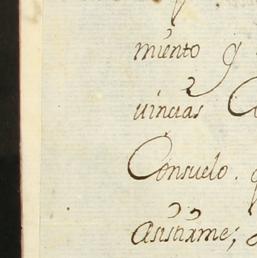 miento q
uincias
Consuelo.
asistirme;